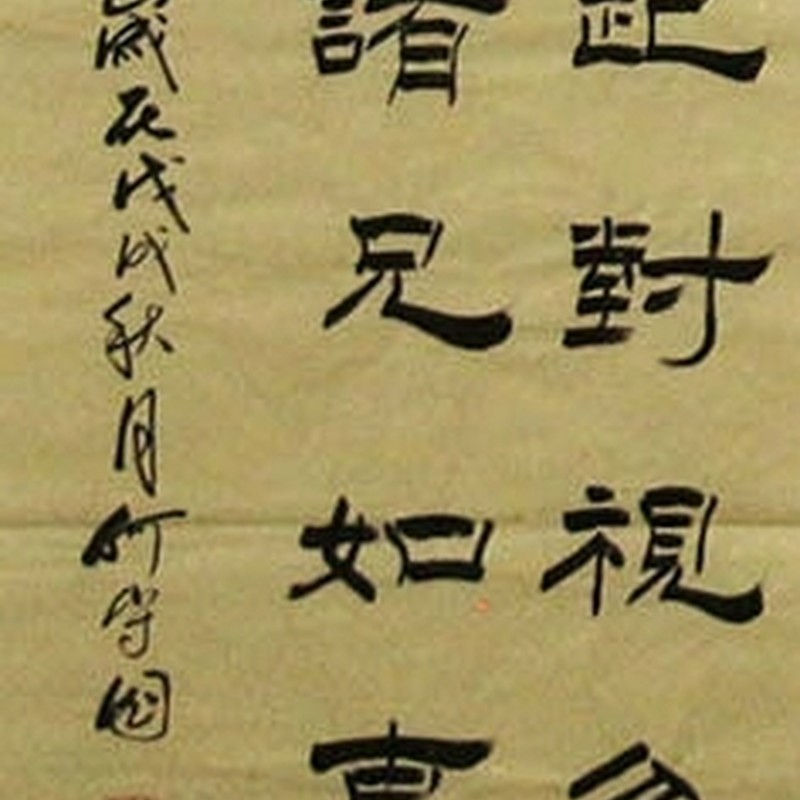 對視
諸兄如
歲在戊戌秋月何守